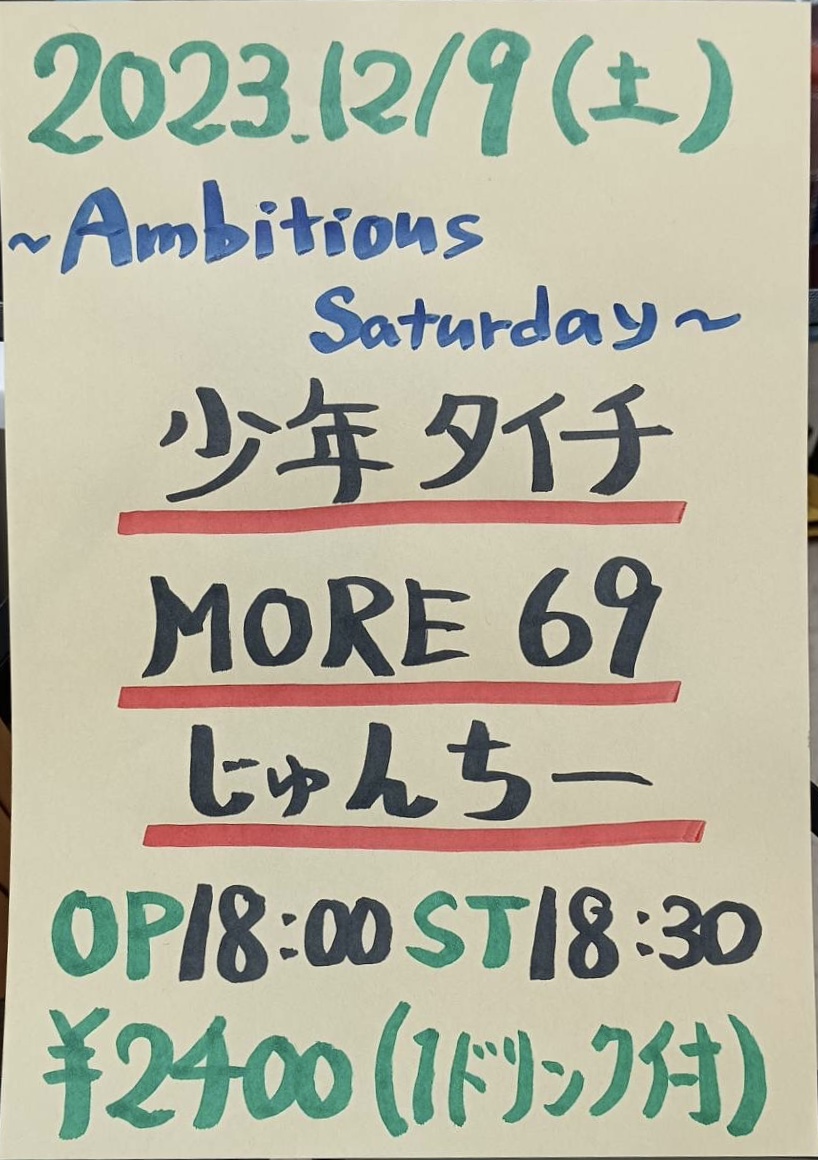 2023.12/9(土)
~Ambitious
Saturday~
少年タイチ
MORE 69
じゅんちー
OP18:00 ST18:30
¥2400(1ドリンク付)